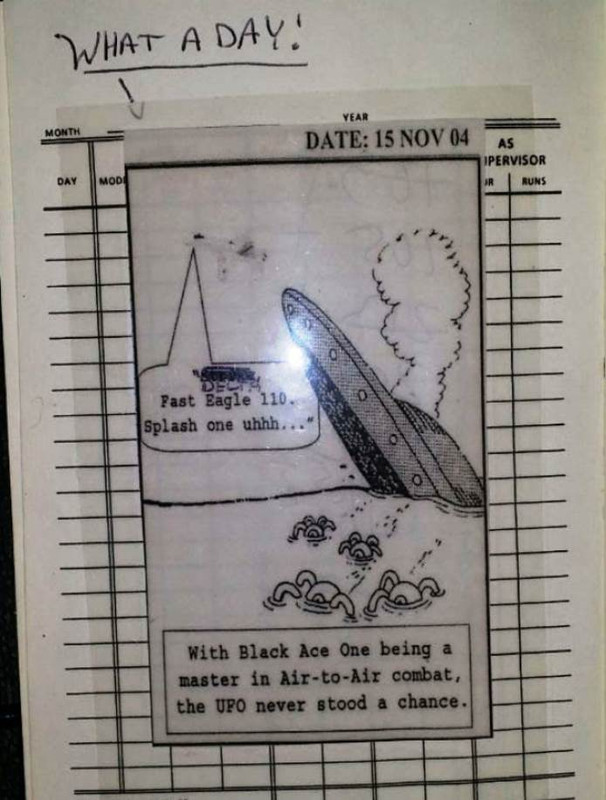 WHAT A DAY!
YEAR
MONTH
DATE: 15 NOV 04
AS
DAY
RUNS
DELTA
Fast Eagle 110.
Splash one uhhh..."
With Black Ace One being a
master in Air-to-Air combat,
the UFO never stood a chance.